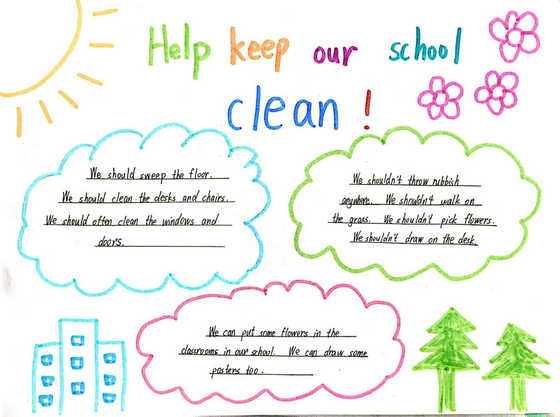 Help keep our school
clean!
We should sweep the floor.
We should clean the desks and chairs.
We should often clean the windows and
doors.
We shouldn't throw rubbish
anywhere. We shouldn't walk on
the grass. We shouldn't pick flowers.
We shouldn't draw on the desk.
We can put some flowers in the
classrooms in our school. We can draw some
posters too.